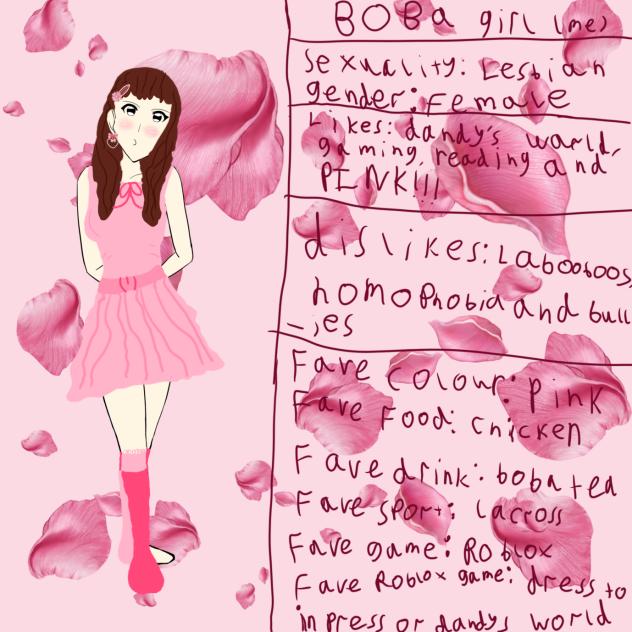 BOBa girl (me)
Sexuality: Lesbian
gender: Female
Likes: dandy's world,
gaming, reading and
PINK!!!
dislikes: Labooboos,
homophobia and bull
-ies
Fave colour: pink
Fave Food: chicken
Fave drink: boba tea
Fave sport: lacross
Fave game: Roblox
Fave Roblox game: dress to
inpress or dandys world